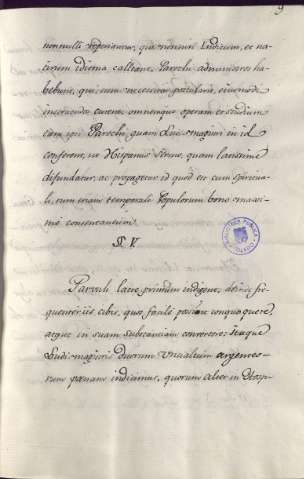 9
nonnulli reperiantur, qui norunt Indicum, et na-
tivum idioma callent. Parochi administros ha-
bebunt, qui, cum necesitas postularit, eius modi
curent, omnemque operam et studium
tam ipsi Parochi, quam Ludi-magistri in id
conferent, ut Hispanus sermo, quam latissime
defundatur, ac propagetur id quod est cum spiritua-
li, tum etiam temporali Populorum bono maxi-
mè consentaneum.
§. V.
Parvuli lacte primùm indigent, deinde fre-
quenter iis cibis, quos facilè possint conquoquere,
atque in suam substantiam convertere: Itaque
Ludi-magistris duorum Uncialium argenteo-
rum poenam indicimus, quorum alter in Hosp-